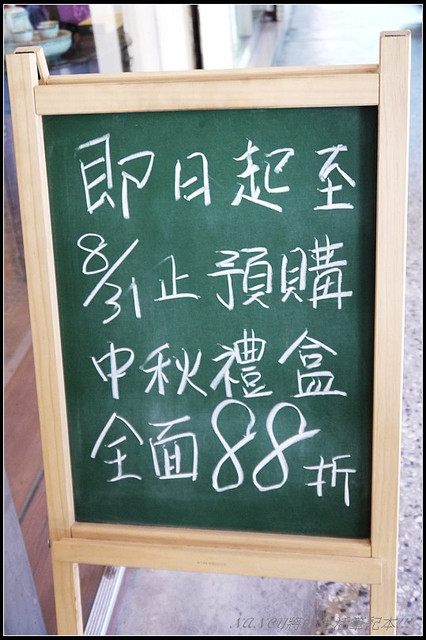 即日起至
8/31止預購
中秋禮盒
全面88折